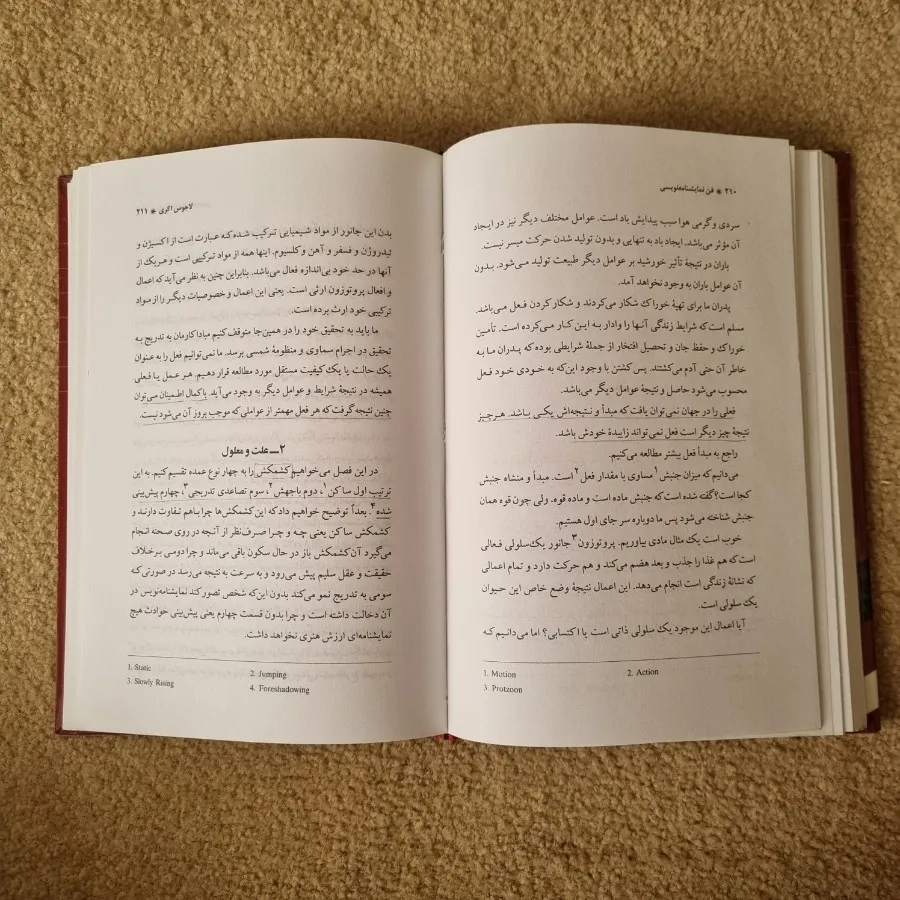 ۲۱۰ ❋ فن نمایشنامه‌نویسی
سردی و گرمی هوا سبب پیدایش باد است. عوامل مختلف دیگر نیز در ایجاد
آن مؤثر می‌باشد. ایجاد باد به تنهایی و بدون تولید شدن حرکت میسر نیست.
باران در نتیجهٔ تأثیر خورشید بر عوامل دیگر طبیعت تولید می‌شود. بدون
آن عوامل باران به وجود نخواهد آمد.
پدران ما برای تهیهٔ خوراک شکار می‌کردند و شکار کردن فعل می‌باشد.
مسلم است که شرایط زندگی آنها را وادار به این کار می‌کرده است. تأمین
خوراک و حفظ جان و تحصیل افتخار از جملهٔ شرایطی بوده که پدران ما به
خاطر آن حتی آدم می‌کشتند. پس کشتن با وجود این‌که به خودی خود فعل
محسوب می‌شود حاصل و نتیجهٔ عوامل دیگر می‌باشد.
فعلی را در جهان نمی‌توان یافت که مبدأ و نتیجه‌اش یکی باشد. هر چیز
نتیجهٔ چیز دیگر است فعل نمی‌تواند زاییدهٔ خودش باشد.
راجع به مبدأ فعل بیشتر مطالعه می‌کنیم.
می‌دانیم که میزان جنبش۱ مساوی با مقدار فعل۲ است. مبدأ و منشاه جنبش
کجا است؟ گفته شده است که جنبش ماده است و ماده قوه. ولی چون قوه همان
جنبش شناخته می‌شود پس ما دوباره سر جای اول هستیم.
خوب است یک مثال مادی بیاوریم. پروتوزون۳ جانور یک‌سلولی فعالی
است که هم غذا را جذب و بعد هضم می‌کند و هم حرکت دارد و تمام اعمالی
که نشانهٔ زندگی است انجام می‌دهد. این اعمال نتیجهٔ وضع خاص این حیوان
یک سلولی است.
آیا اعمال این موجود یک سلولی ذاتی است یا اکتسابی؟ اما می‌دانیم که
1. Motion 2. Action
3. Protzoon
لاجوس اگری ❋ ۲۱۱
بدن این جانور از مواد شیمیایی ترکیب شده که عبارت است از اکسیژن و
ئیدروژن و فسفر و آهن و کلسیوم. اینها همه از مواد ترکیبی است و هر یک از
آنها در حد خود بی‌اندازه فعال می‌باشد. بنابراین چنین به نظر می‌آید که اعمال
و افعال پروتوزون ارثی است. یعنی این اعمال و خصوصیات دیگر را از مواد
ترکیبی خود ارث برده است.
ما باید به تحقیق خود را در همین‌جا متوقف کنیم مبادا کارمان به تدریج به
تحقیق در اجرام سماوی و منظومهٔ شمسی برسد. ما نمی‌توانیم فعل را به عنوان
یک حالت یا یک کیفیت مستقل مورد مطالعه قرار دهیم. هر عمل یا فعلی
همیشه در نتیجهٔ شرایط و عوامل دیگر به وجود می‌آید. با کمال اطمینان می‌توان
چنین نتیجه گرفت که هر فعل مهمتر از عواملی که موجب بروز آن می‌شود نیست.
۲ــ علت و معلول
در این فصل می‌خواهیم کشمکش را به چهار نوع عمده تقسیم کنیم. به این
ترتیب اول ساکن۱ دوم باجهش۲ سوم تصاعدی تدریجی۳ چهارم پیش‌بینی
شده۴. بعداً توضیح خواهیم داد که این کشمکش‌ها چرا باهم تفاوت دارند و
کشمکش ساکن یعنی چه و چرا صرف‌نظر از آنچه در روی صحنه انجام
می‌گیرد آن کشمکش باز در حال سکون باقی می‌ماند و چرا دومی برخلاف
حقیقت و عقل سلیم پیش می‌رود و به سرعت به نتیجه می‌رسد در صورتی که
سومی به تدریج نمو می‌کند بدون این‌که شخص تصور کند نمایشنامه‌نویس در
آن دخالت داشته است و چرا بدون قسمت چهارم یعنی پیش‌بینی حوادث هیچ
نمایشنامه‌ای ارزش هنری نخواهد داشت.
1. Static 2. Jumping
3. Slowly Rising 4. Foreshadowing